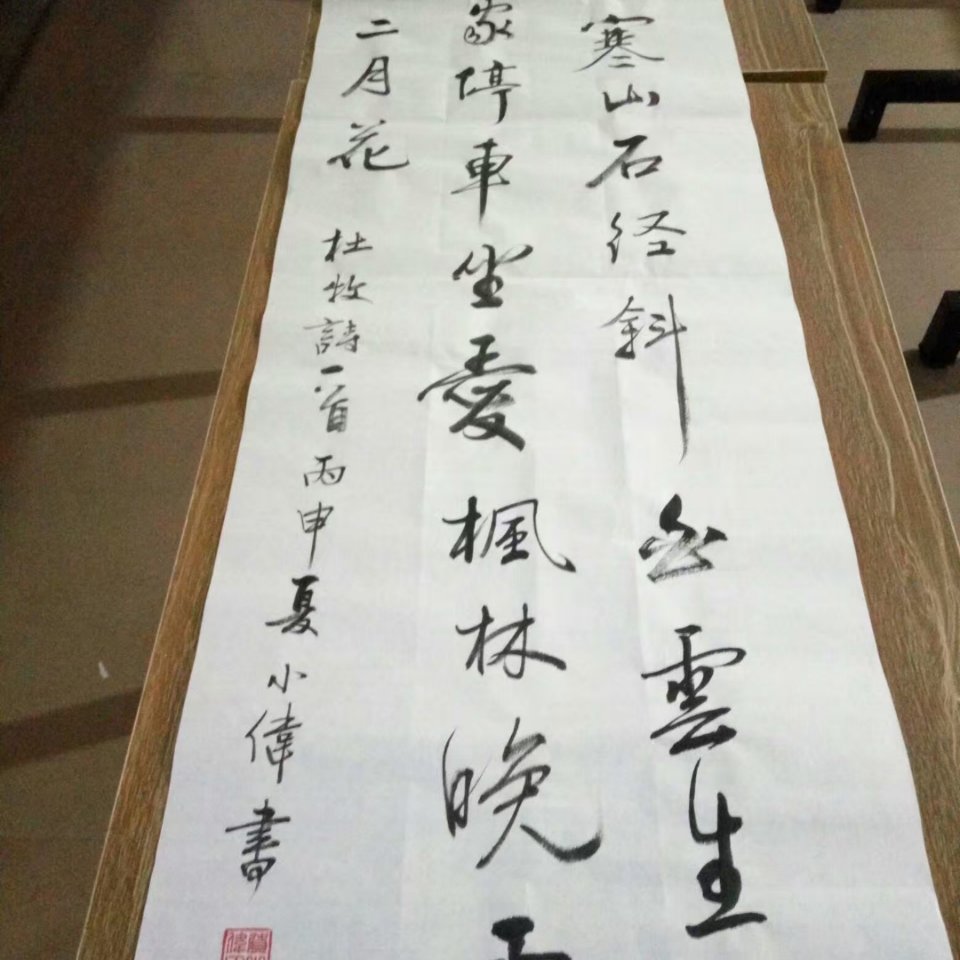 寒山石径斜白雲生
家停車坐愛楓林晚
二月花
杜牧詩一首丙申夏小偉書